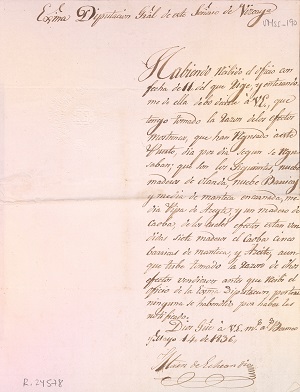 Exma Diputacion Gral de este Señorio de Vizcaya
Habiendo recibido el oficio con
fecha de 11 del que rije, y enterado
me de ella debo decir á V.E. que
tengo tomado la razon de los efectos
que han llegado á este
Puerto, dia por dia segun se
que son los siguientes, nueve
maderos de olanda, nueve Barricas
y media de manteca encarnada, me
dia Pipa de Aceyte, y un madero de
Caoba, de los cuales efectos estan ven
didas siete maderos el Caoba cinco
barricas de manteca y Aceite, aun
que trabe tomado la razon de dhos
efectos vendieron antes que recibi el
oficio de la Exma Diputacion, por tan
ninguna se habendido por haber les
notificado.
Dios Gue á V.E. ms as Bermeo
y Mayo 14 de 1836.
de Echeandia
R. 24578